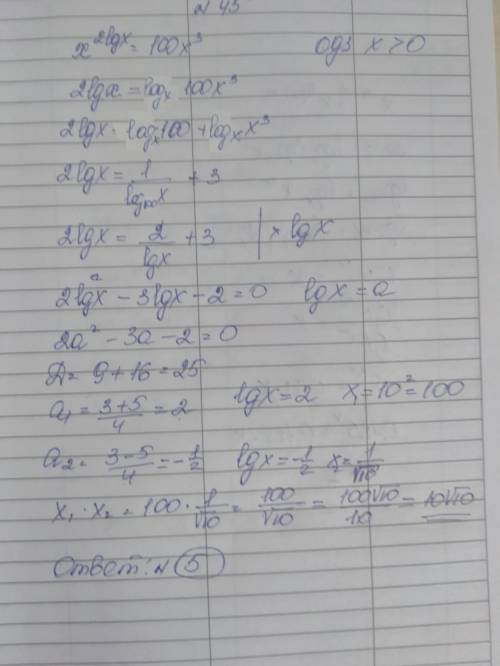 N 43
x^(2lgx) = 100x³ ОДЗ x > 0
2lgx = logₓ 100x³
2lgx = logₓ100 + logₓx³
2lgx = 1/log₁₀₀x + 3
2lgx = 2/lgx + 3 | × lgx
2lg²x - 3lgx - 2 = 0 lgx = a
2a² - 3a - 2 = 0
D = 9 + 16 = 25
a₁ = (3+5)/4 = 2 lgx = 2 x = 10² = 100
a₂ = (3-5)/4 = -1/2 lgx = -1/2 x = 1/√10
x₁ · x₂ = 100 · 1/√10 = 100/√10 = 100√10/10 = 10√10
Ответ: N 5